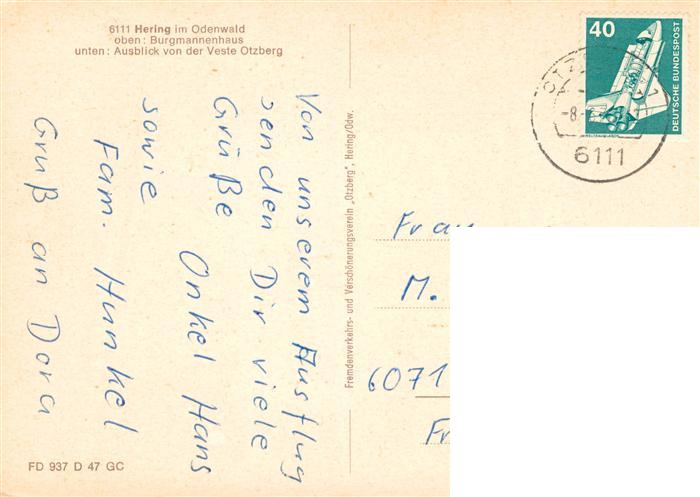 6111 Hering im Odenwald
oben: Burgmannenhaus
unten: Ausblick von der Veste Otzberg
Von unserem Ausflug
senden Dir viele
Grüße Onkel Hans
sowie
Fam. Hunkel
Gruß an Dora
FD 937 D 47 GC
Fremdenverkehrs- und Verschönerungsverein „Otzberg", Hering/Odw.
40
DEUTSCHE BUNDESPOST
OTZ
1
-8.
6111
Frau
M.
6071
Fr